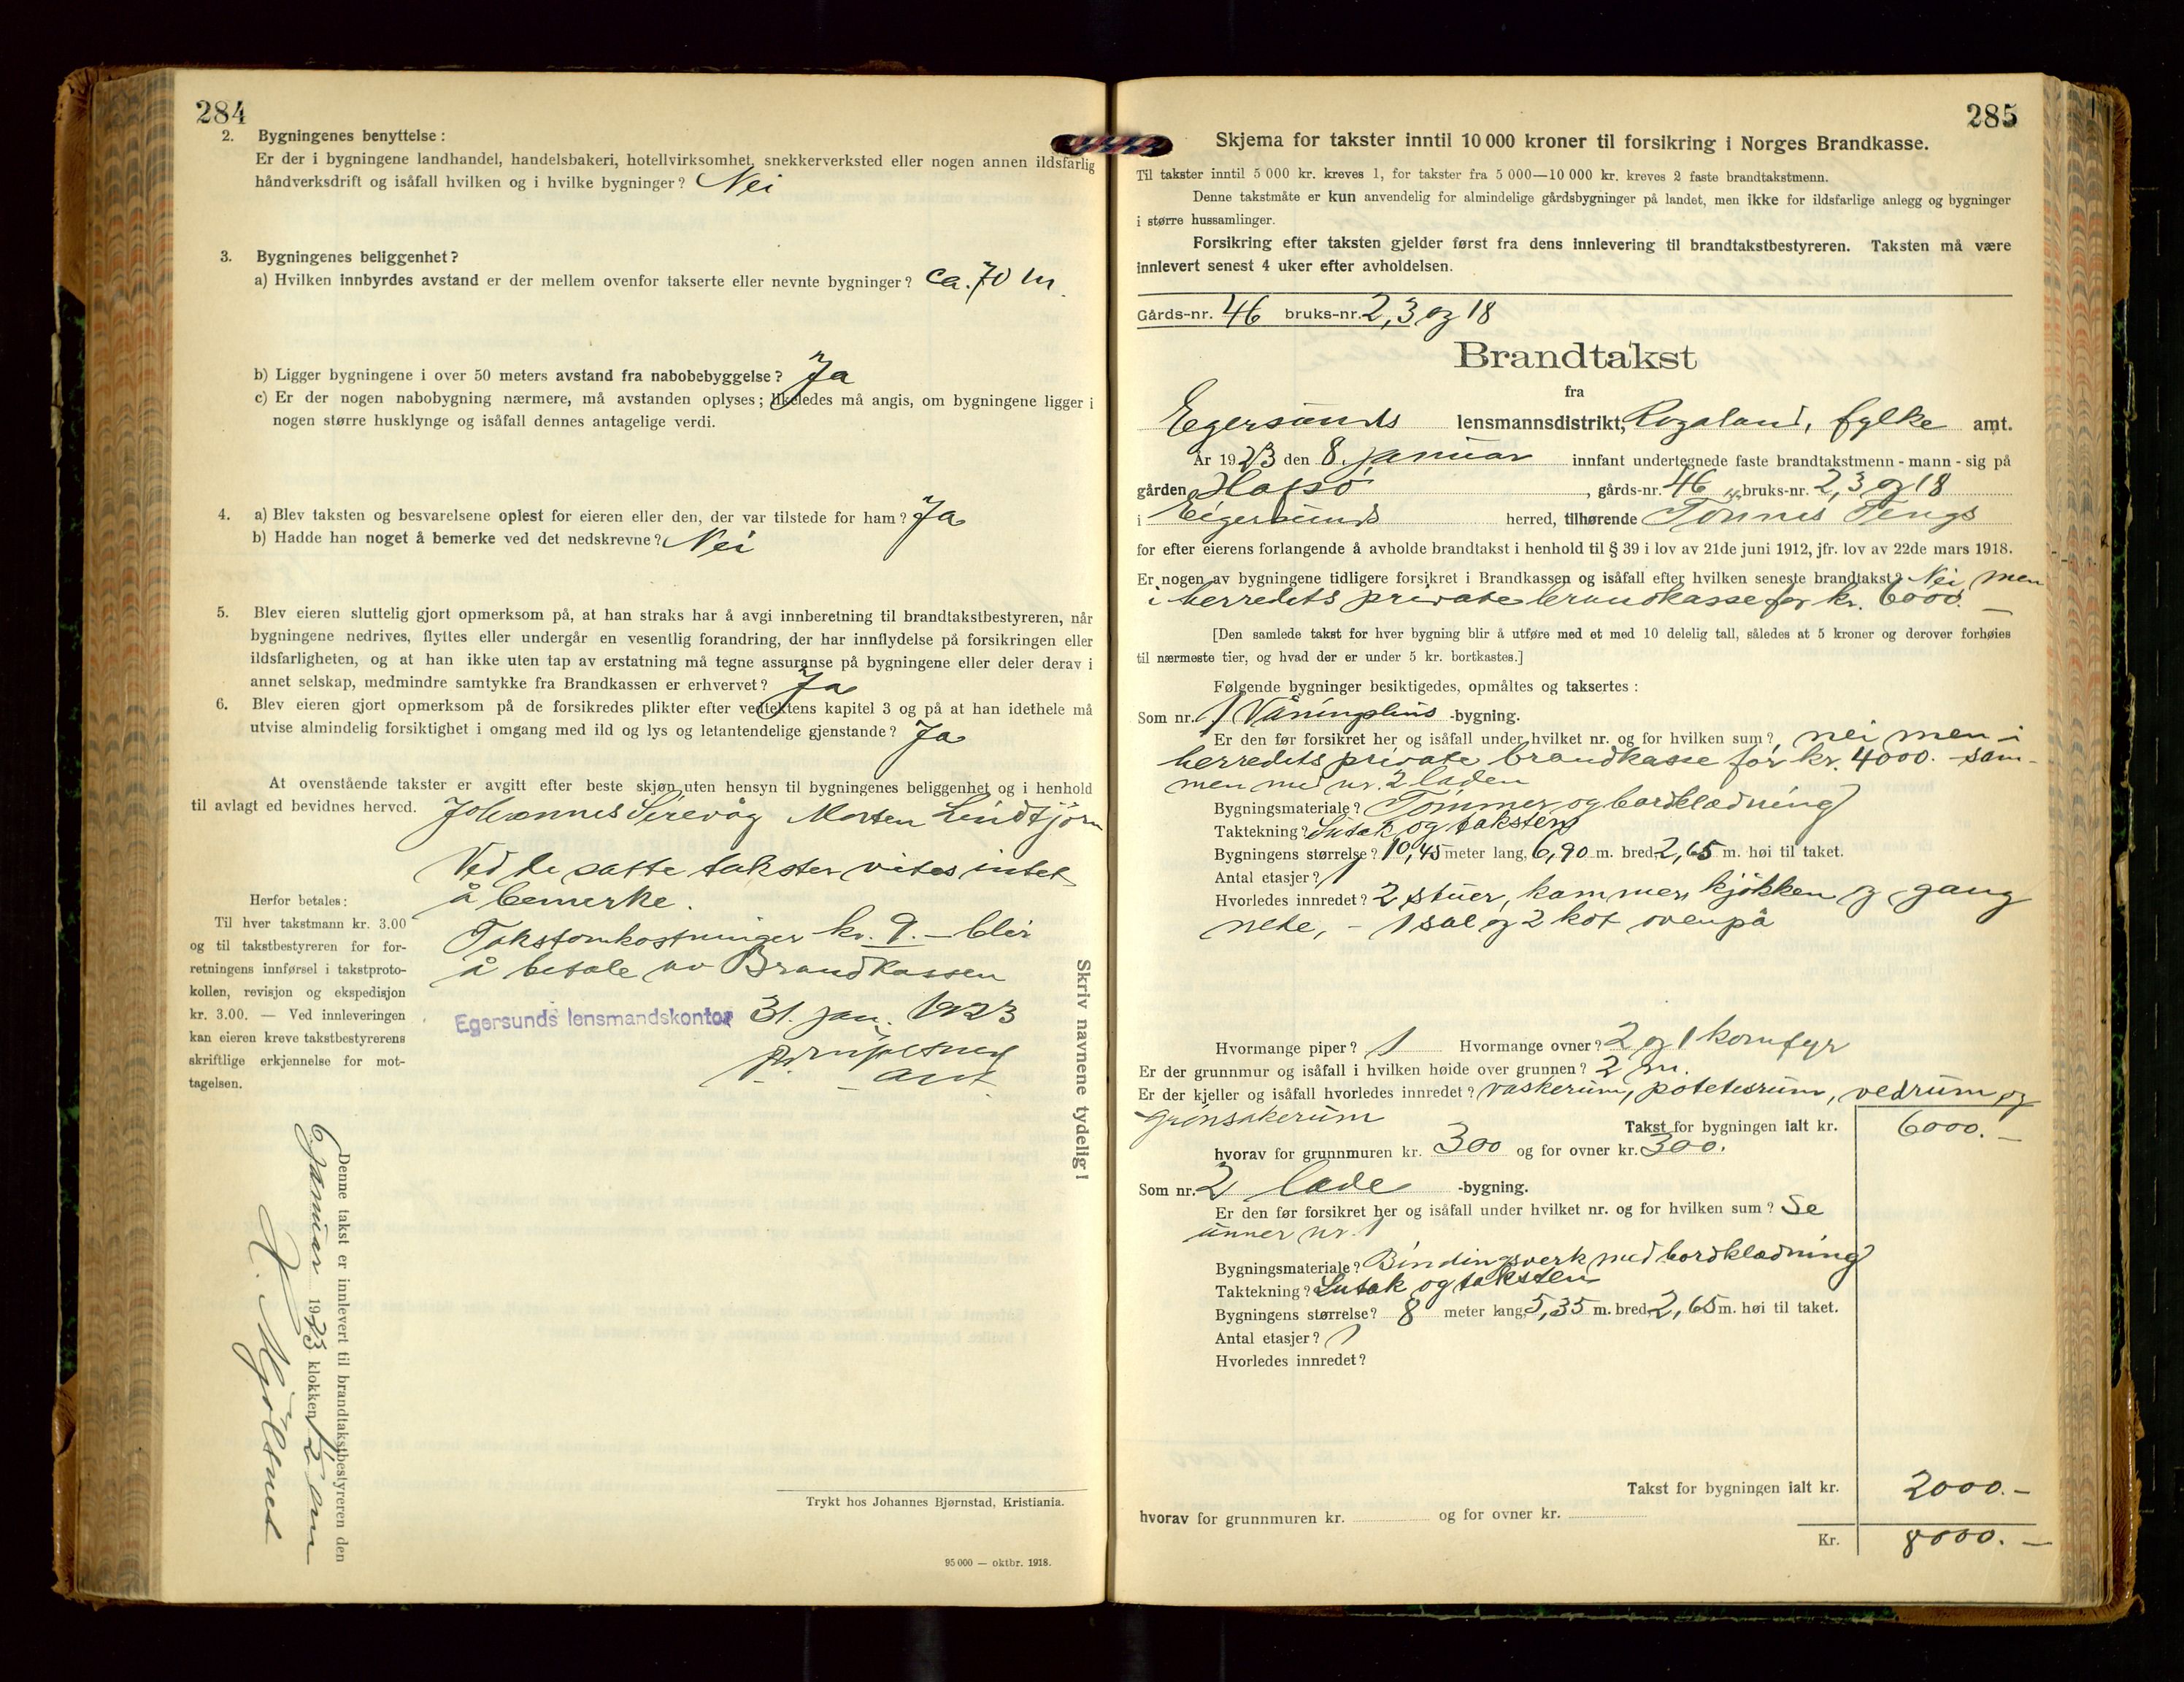 284
2. Bygningenes benyttelse:
Er der i bygningene landhandel, handelsbakeri, hotellvirksomhet, snekkerverksted eller nogen annen ildsfarlig
håndverksdrift og isåfall hvilken og i hvilke bygninger? Nei
3. Bygningenes beliggenhet?
a) Hvilken innbyrdes avstand er der mellem ovenfor takserte eller nevnte bygninger? ca. 70 m.
b) Ligger bygningene i over 50 meters avstand fra nabobebyggelse? Ja
c) Er der nogen nabobygning nærmere, må avstanden oplyses; likeledes må angis, om bygningene ligger i
nogen større husklynge og isåfall dennes antagelige verdi.
4. a) Blev taksten og besvarelsene oplest for eieren eller den, der var tilstede for ham? Ja
b) Hadde han noget å bemerke ved det nedskrevne? Nei
5. Blev eieren sluttelig gjort opmerksom på, at han straks har å avgi innberetning til brandtakstbestyreren, når
bygningene nedrives, flyttes eller undergår en vesentlig forandring, der har innflydelse på forsikringen eller
ildsfarligheten, og at han ikke uten tap av erstatning må tegne assuranse på bygningene eller deler derav i
annet selskap, medmindre samtykke fra Brandkassen er erhvervet? Ja
6. Blev eieren gjort opmerksom på de forsikredes plikter efter vedtektens kapitel 3 og på at han idethele må
utvise almindelig forsiktighet i omgang med ild og lys og letantendelige gjenstande? Ja
At ovenstående takster er avgitt efter beste skjøn uten hensyn til bygningenes beliggenhet og i henhold
til avlagt ed bevidnes herved. Johannes Sirevåg Morten Lindtjørn
Ved de satte takster vites intet
å bemerke.
Takstomkostninger kr. 9.- blir
å betale av Brandkassen
Egersunds lensmandskontor 31. jan. 1923
Herfor betales:
Til hver takstmann kr. 3.00
og til takstbestyreren for for-
retningens innførsel i takstproto-
kollen, revisjon og ekspedisjon
kr. 3.00. — Ved innleveringen
kan eieren kreve takstbestyrerens
skriftlige erkjennelse for mot-
tagelsen.
Denne takst er innlevert til brandtakstbestyreren den
6 januar 1923 klokken 12 em
Mjølsnes
Skriv navnene tydelig!
Trykt hos Johannes Bjørnstad, Kristiania.
95 000 — oktbr. 1918.
285
Skjema for takster inntil 10 000 kroner til forsikring i Norges Brandkasse.
Til takster inntil 5 000 kr. kreves 1, for takster fra 5 000—10 000 kr. kreves 2 faste brandtakstmenn.
Denne takstmåte er kun anvendelig for almindelige gårdsbygninger på landet, men ikke for ildsfarlige anlegg og bygninger
i større hussamlinger.
Forsikring efter taksten gjelder først fra dens innlevering til brandtakstbestyreren. Taksten må være
innlevert senest 4 uker efter avholdelsen.
Gårds-nr. 46 bruks-nr. 2, 3 og 18
Brandtakst
fra
Egersunds lensmannsdistrikt, Rogaland, fylke amt.
År 1923 den 8. januar innfant undertegnede faste brandtakstmenn - mann - sig på
gården , gårds-nr. 46 bruks-nr. 2, 3 og 18
i Eigersunds herred, tilhørende Tønnes Tengs
for efter eierens forlangende å avholde brandtakst i henhold til § 39 i lov av 21de juni 1912, jfr. lov av 22de mars 1918.
Er nogen av bygningene tidligere forsikret i Brandkassen og isåfall efter hvilken seneste brandtakst? Nei, men
i herredets private brandkasse for kr. 6000.—
[Den samlede takst for hver bygning blir å utføre med et med 10 delelig tall, således at 5 kroner og derover forhøies
til nærmeste tier, og hvad der er under 5 kr. bortkastes.]
Følgende bygninger besiktigedes, opmåltes og taksertes:
Som nr. 1 Våningshus -bygning.
Er den før forsikret her og isåfall under hvilket nr. og for hvilken sum? nei men i
herredets private brandkasse for kr. 4000. sam-
men med nr. 2 laden
Bygningsmateriale? Tømmer og bordklædning
Taktekning? Sutak og taksten
Bygningens størrelse? 10,45 meter lang, 6,90 m. bred, 2,65 m. høi til taket.
Antal etasjer? 1
Hvorledes innredet? 2 stuer, kammer, kjøkken og gang
nede, - 1 sal og 2 kot ovenpå
Hvormange piper? 1 Hvormange ovner? 2 og 1 komfyr
Er der grunnmur og isåfall i hvilken høide over grunnen? 2 m.
Er der kjeller og isåfall hvorledes innredet? vaskerum, potetesrum, vedrum og
grønsakerum
Takst for bygningen ialt kr. 6000.—
hvorav for grunnmuren kr. 300 og for ovner kr. 300.
Som nr. 2 lade -bygning.
Er den før forsikret her og isåfall under hvilket nr. og for hvilken sum? Se
unner nr. 1
Bygningsmateriale? Bindingsverk med bordklædning
Taktekning? Sutak og taksten
Bygningens størrelse? 8 meter lang 5,35 m. bred, 2,65 m. høi til taket.
Antal etasjer? 1
Hvorledes innredet?
Takst for bygningen ialt kr. 2000.—
hvorav for grunnmuren kr. og for ovner kr.
Kr. 8000.—